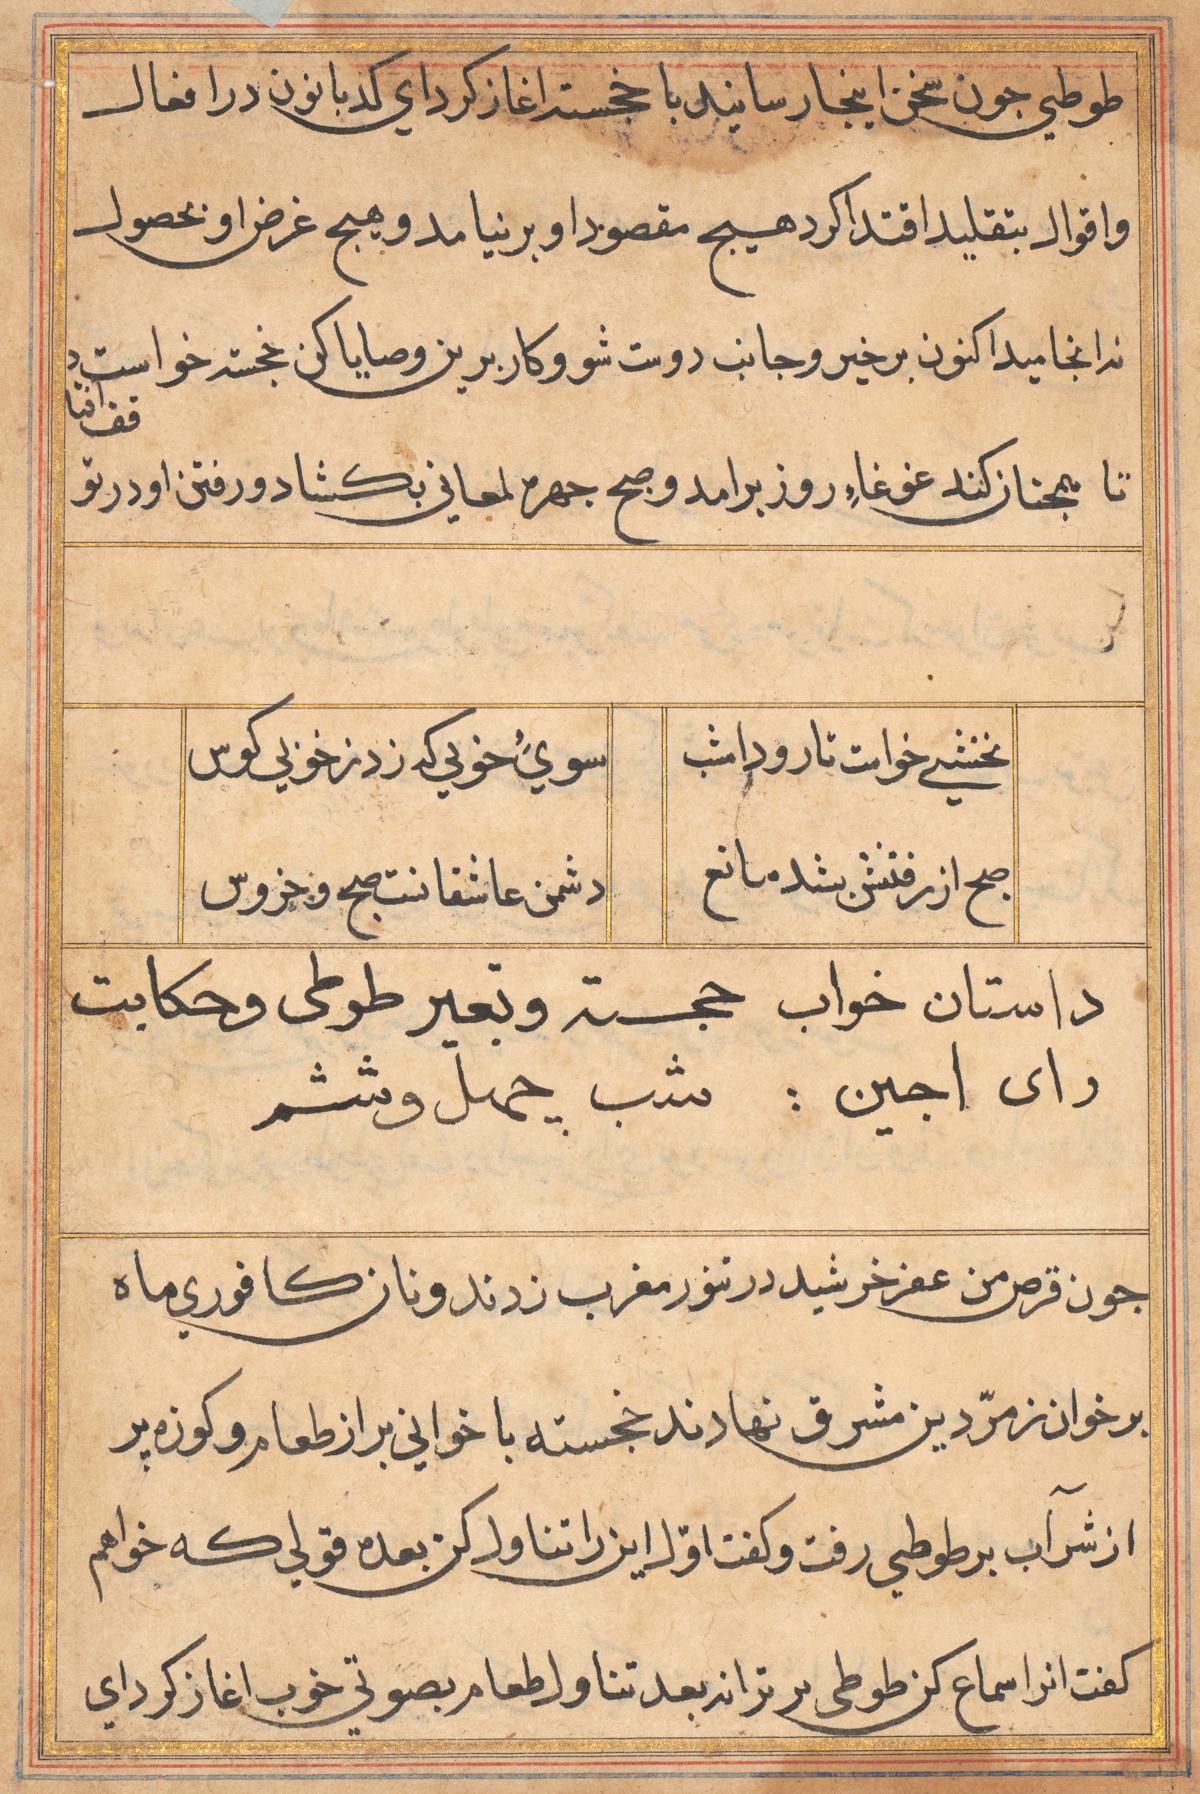 طوطي جون سخن اينجا رسانيد با خجسته اغاز كرد اي كدبانو ن در افعال
واقوال بتقليد اقتدا كرد هيچ مقصود او بر نيامد و هيچ غرض او بحصول
نه انجاميد اكنون برخيز و جانب دوست شو و كار برين وصايا كن خجسته خواست
تا همچنان كند غوغاء روز برامد و صبح چهره لمعاني بكشاد و رفتن او در تو
قف افتا د
نخشبي خواست تا رود امشب
سويُ خوبي كه زد ز خوبي كوس
صبح از رفتنش بشده مانع
دشمن عاشقانست صبح و خروس
داستان خواب خجسته و تعبير طوطى و حكايت
راى اجين : شب چهل وششم
جون قرص من عفر خرشيد در تنور مغرب زدند و نان كافوري ماه
بر خوان زمرّدين مشرق نهادند خجسته با خواني پر از طعام و كوزه پر
از شرآب بر طوطي رفت و كفت اوّل اين را تناول كن بعده قولي كه خواهم
كفت انرا سماع كن طوطى بر ترانه بعد تناول طعام بصوتي خوب اغاز كرد اي